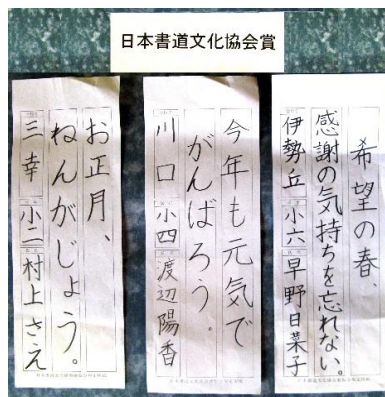 日本書道文化協会賞
希望の春、
感謝の気持ちを忘れない。
伊勢丘 小六 早野日菜子
今年も元気で
がんばろう。
川口 小四 渡辺陽香
お正月、
ねんがじょう。
三幸 小二 村上さえ